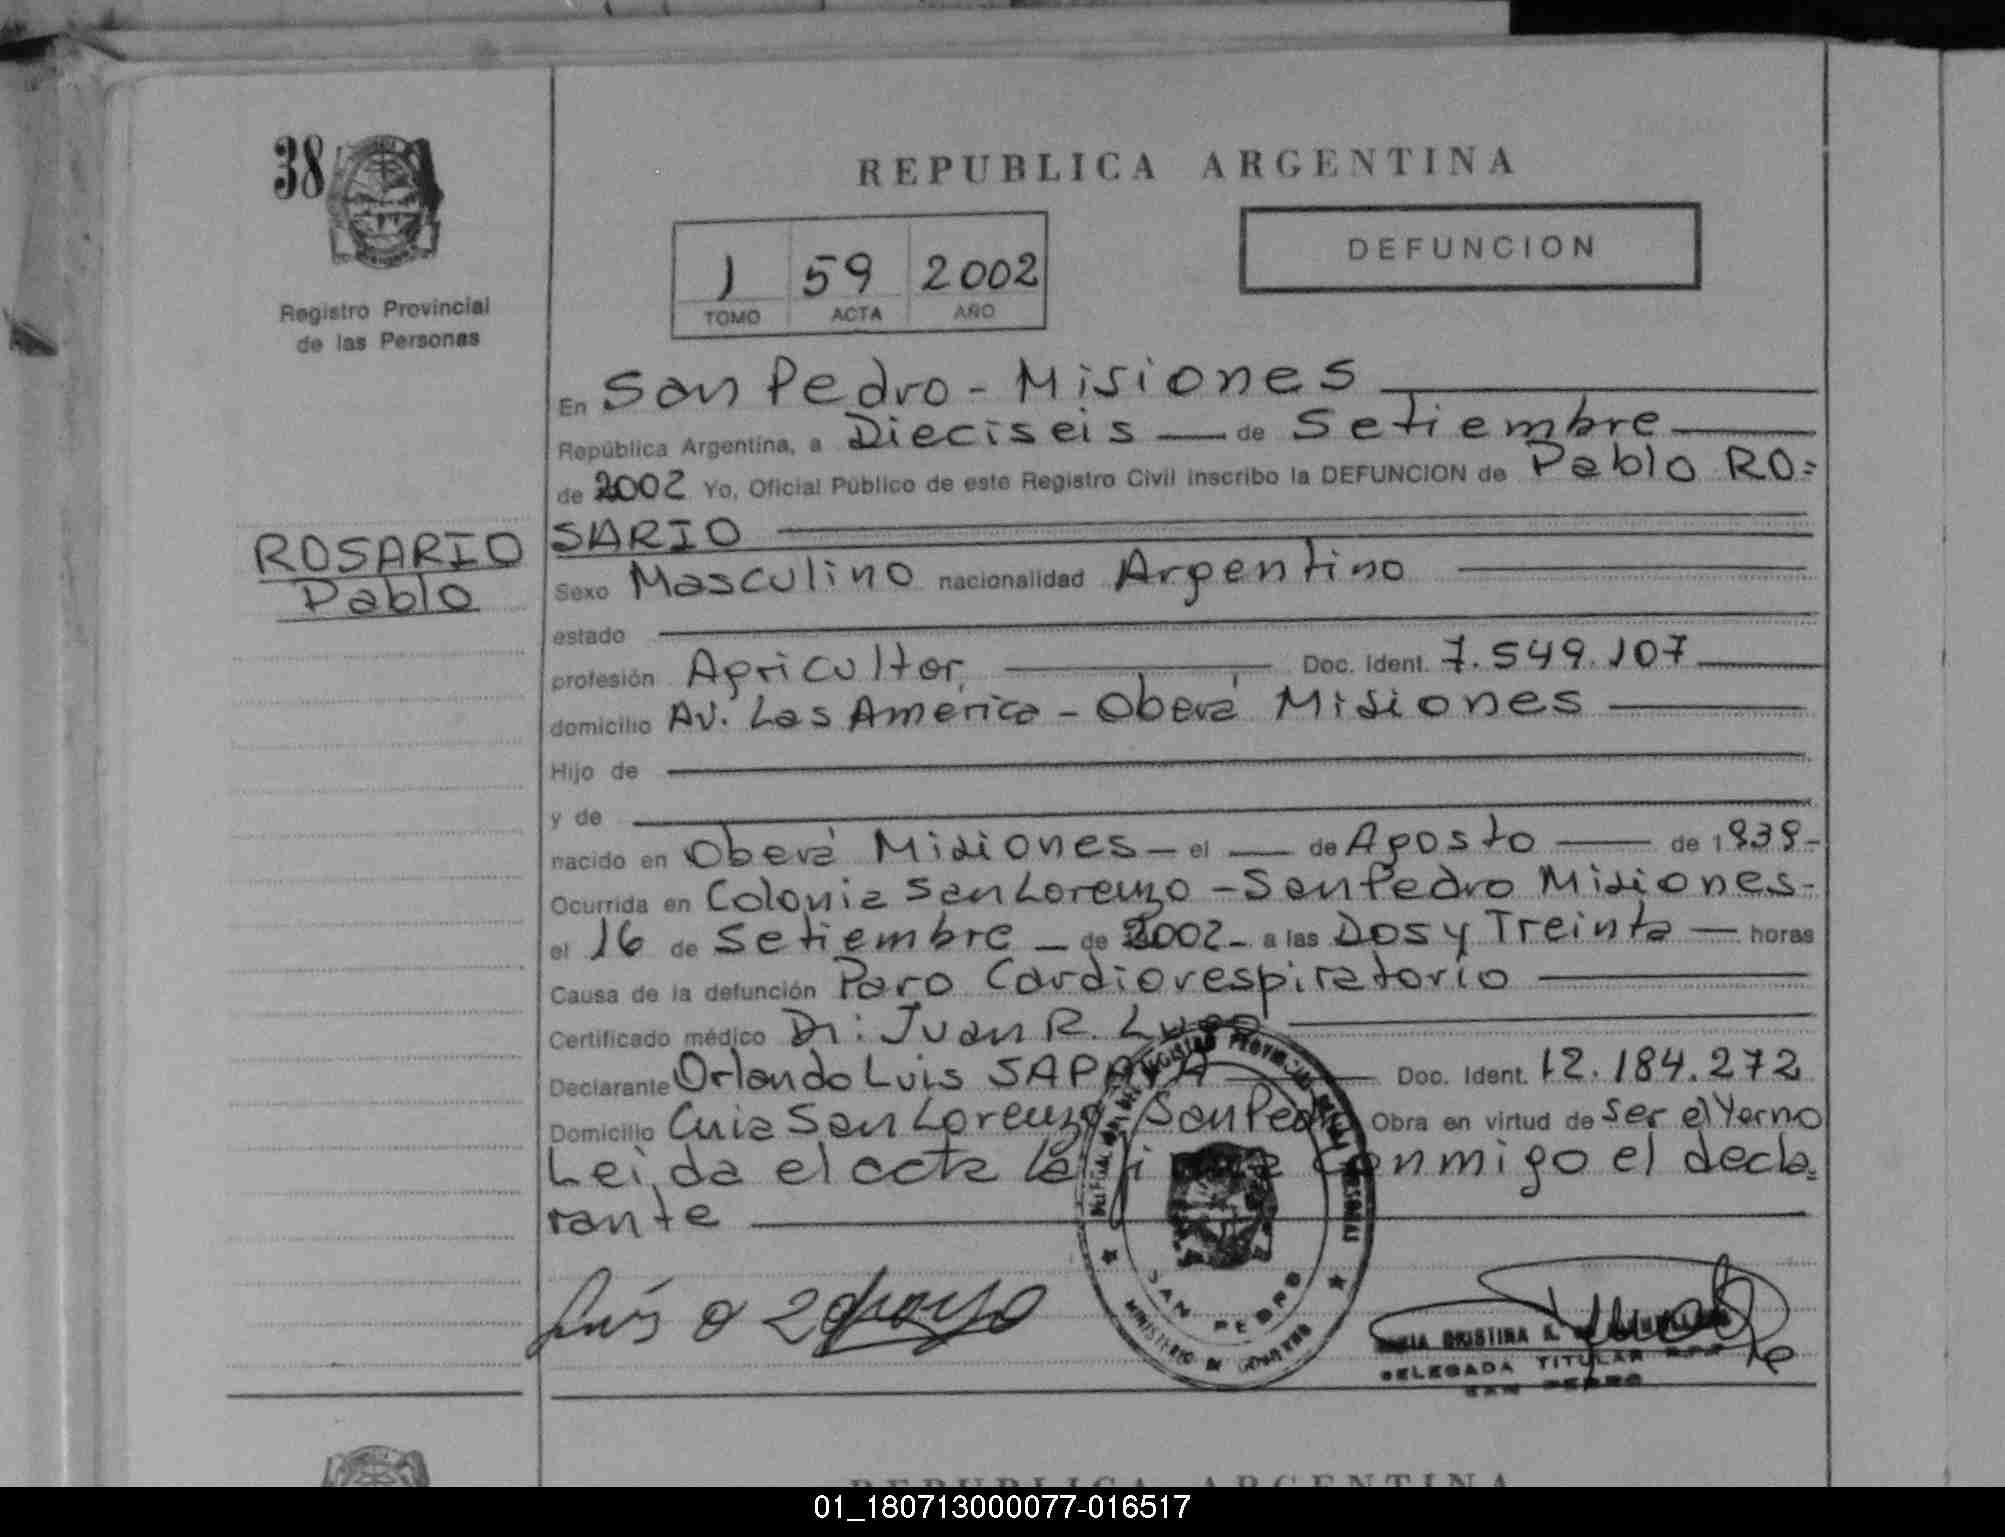 38
Registro Provincial
de las Personas
REPUBLICA ARGENTINA
1 59 2002
TOMO ACTA AÑO
DEFUNCION
En San Pedro - Misiones
República Argentina, a Dieciseis — de Setiembre
de 2002 Yo, Oficial Público de este Registro Civil inscribo la DEFUNCION de Pablo RO=
SARIO
ROSARIO
Pablo
Sexo Masculino nacionalidad Argentino
estado
profesión Agricultor, Doc. Ident. 7.549.107
domicilio Av. Las America - Oberá Misiones
Hijo de
y de
nacido en Oberá Misiones - el — de Agosto — de 1939-
Ocurrida en Colonia San Lorenzo - San Pedro Misiones-
el 16 de Setiembre - de 2002 - a las Dos y Treinta — horas
Causa de la defunción Paro Cardiorespiratorio
Certificado médico Dr: Juan R. Lugo
Declarante Orlando Luis Doc. Ident. 12.184.272
Domicilio San Lorenzo San Pedro Obra en virtud de Ser el Yerno
Leida el acta la conmigo el decla=
rante
DEL REGISTRO PROVINCIAL DE LAS PERSONAS
SAN PEDRO
MINISTERIO DE GOBIERNO
CRISTINA
DELEGADA TITULAR R.P.P
SAN PEDRO
REPUBLICA ARGENTINA
01_180713000077-016517